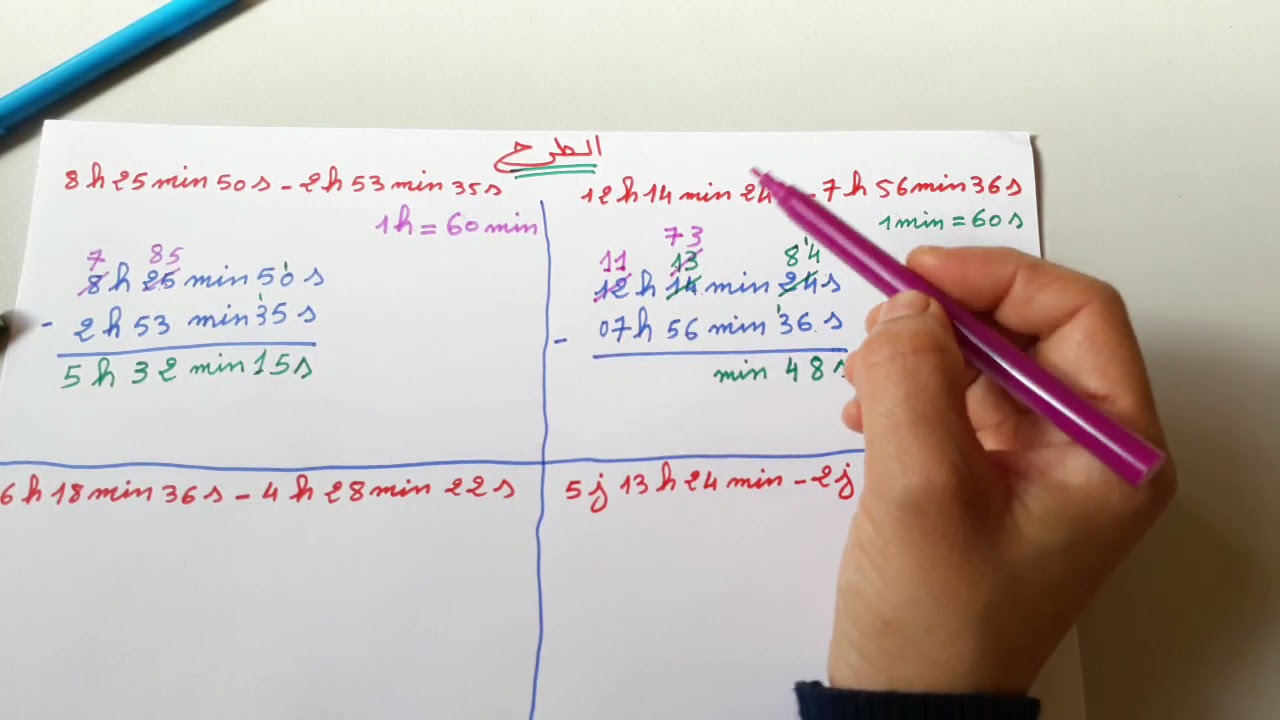 الطرح
8 h 25 min 50 s - 2 h 53 min 35 s
1 h = 60 min
7 85
8 h 25 min 50 s
- 2 h 53 min 35 s
5 h 32 min 15 s
12 h 14 min 24 - 7 h 56 min 36 s
1 min = 60 s
73
11 13 84
12 h 14 min 24 s
- 07 h 56 min 36 s
min 48 s
6 h 18 min 36 s - 4 h 28 min 22 s
5 j 13 h 24 min - 2 j